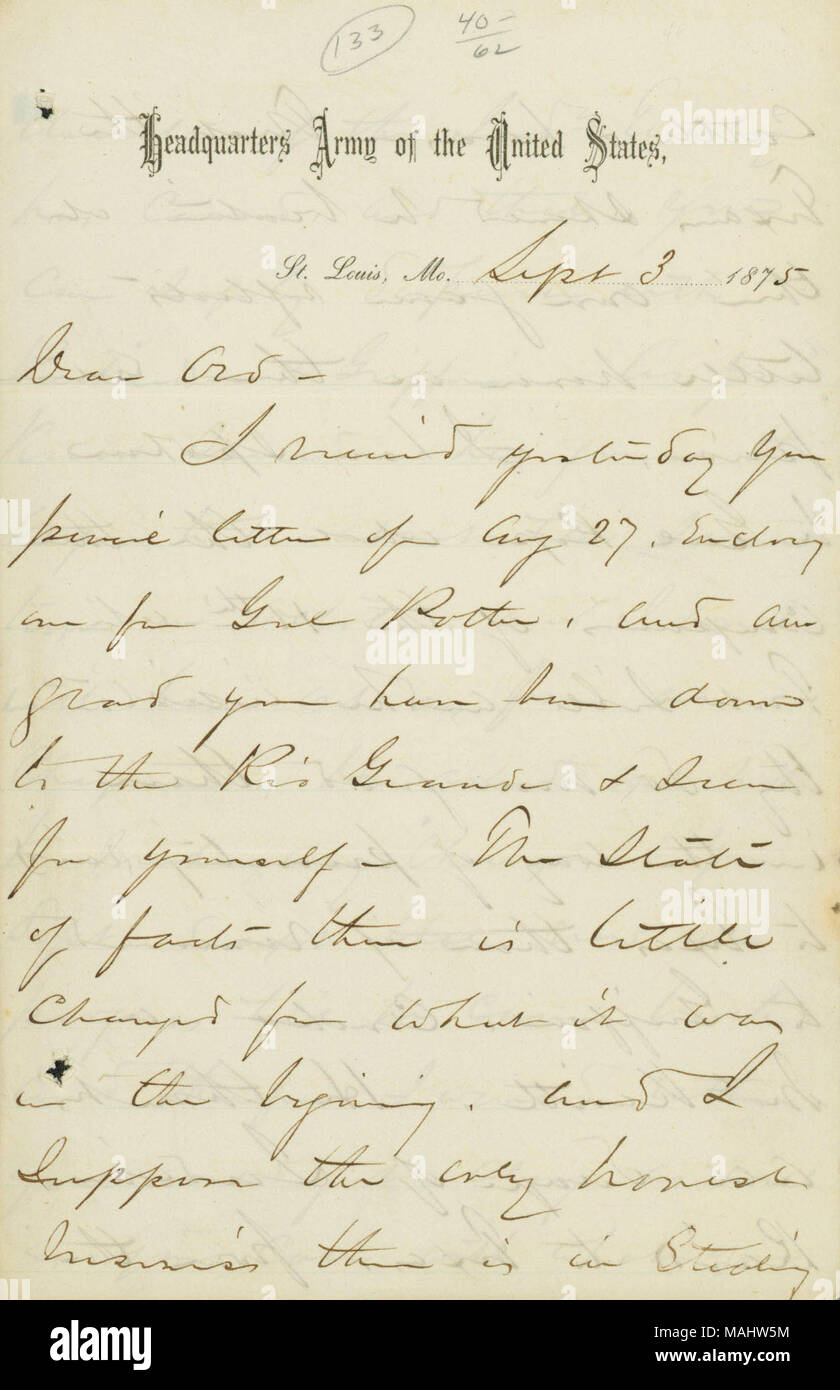 133
40-
62
Headquarters Army of the United States,
St. Louis, Mo. Sept 3 1875
Dear Ord -
I received yesterday your
pencil letter of Aug 27. Enclosing
one for Genl Potter, and am
glad you have been down
to the Rio Grande & seen
for yourself - The State
of facts there is little
changed from what it was
in the begining. and I
suppose the only honest
business there is in Stealing
a alamy stock photo
alamy
Image ID: MAHW5M
www.alamy.com